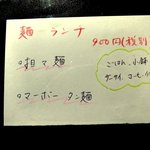 麺ランチ
900円(税別)
○担々麺
ごはん、小鉢
ザーサイ、コーヒー付
○マーボータン麺